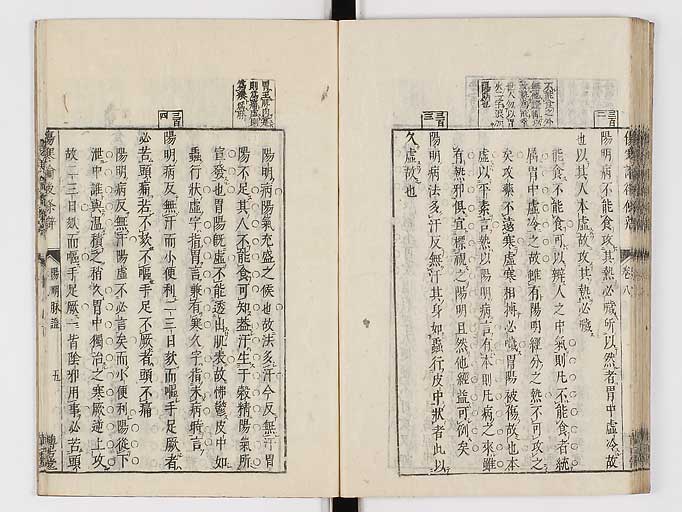 陽明病不能食攻其熱必噦所以然者胃中虛冷故
也以其人本虛故攻其熱必噦
能食不能食可以辨人之中氣則凡不能食者統
屬胃中虛冷之故雖有陽明經外之熱不可攻之
矣攻藥不遠寒虛寒相搏必噦胃陽被傷故也本
虛以平素言熱以陽明病言有本則凡病之來雖
有熱邪俱宜標視之陽明且然他經益可例矣
三百三
陽明病法多汗反無汗其身如蟲行皮中狀者此以
久虛故也
陽明病陽氣充盛之候也故法多汗今反無汗胃
陽不足其人不能食可知蓋汗生于穀精陽氣所
宣發也胃陽既虛不能透出肌表故怫鬱皮中如
蟲行狀虛字指胃言兼有寒久字指未病時言
三百四
陽明病反無汗而小便利二三日欬而嘔手足厥者
必苦頭痛若不欬不嘔手足不厥者頭不痛
陽明病反無汗陽虛不必言矣而小便利陽從下
泄中誰與溫積之稍久胃中獨治之寒厥逆上攻
故二三日欬而嘔手足厥一皆陰邪用事必苦頭
陽明脉證
五
卷八